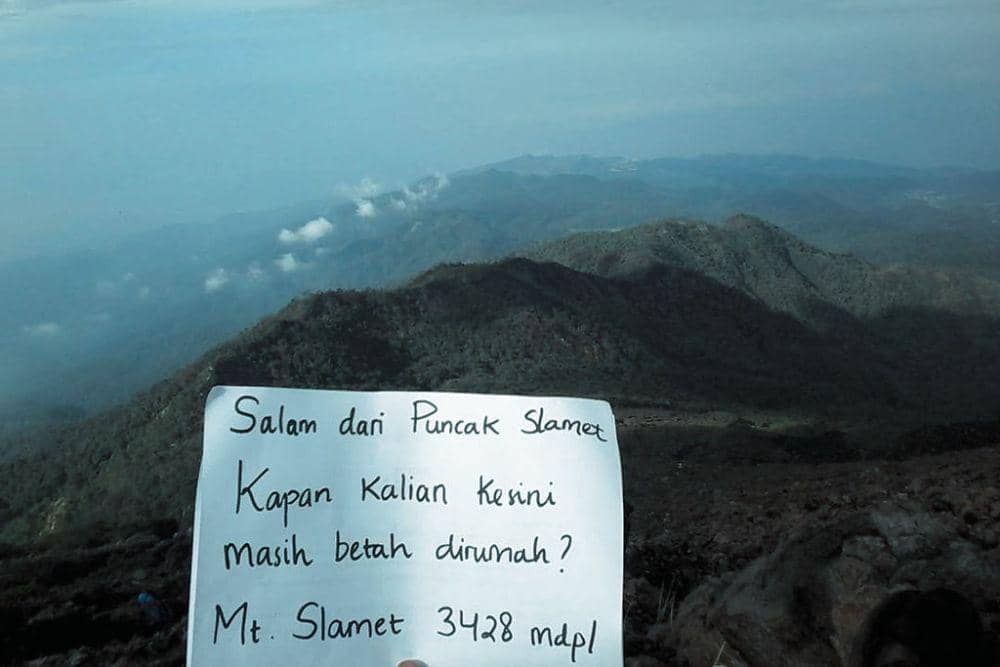 Salam dari Puncak Slamet
Kapan Kalian Kesini
masih betah dirumah?
Mt. Slamet 3428 mdpl